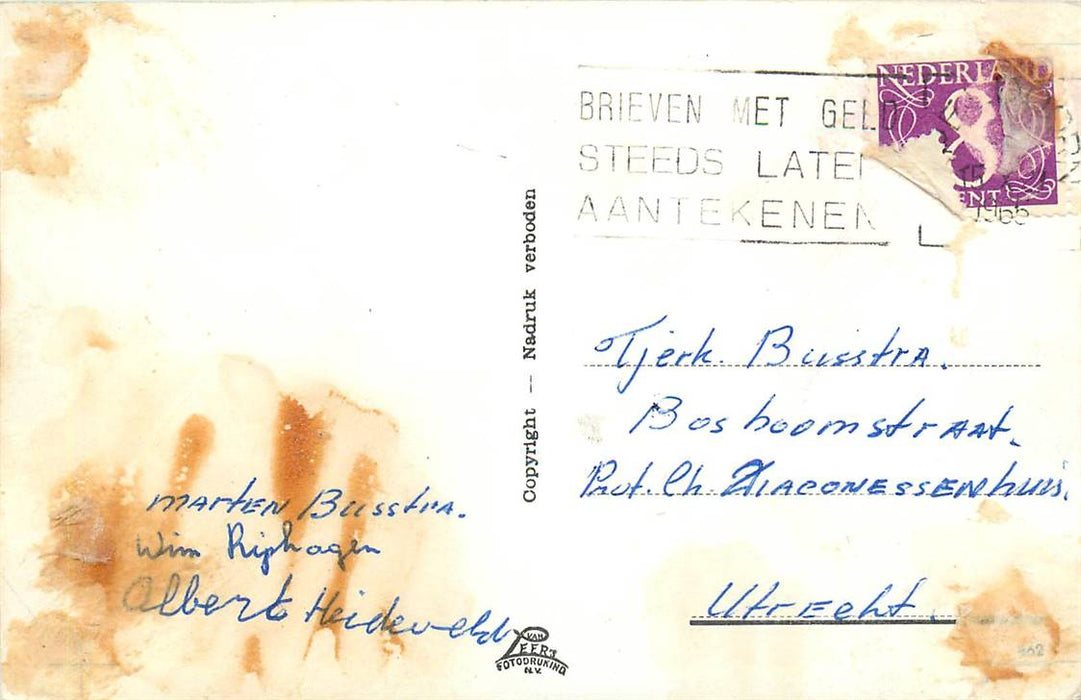 BRIEVEN MET GELD
STEEDS LATEN
AANTEKENEN
NEDERLAND
8
CENT
15
1966
Copyright -- Nadruk verboden
Tjerk. Busstra.
Bosboomstraat.
Prot. Ch Diaconessenhuis.
Utrecht.
Marten Busstra.
Wim Riphagen
Albert Heideveld
VAN
LEER'S
FOTODRUKIND
N.V.